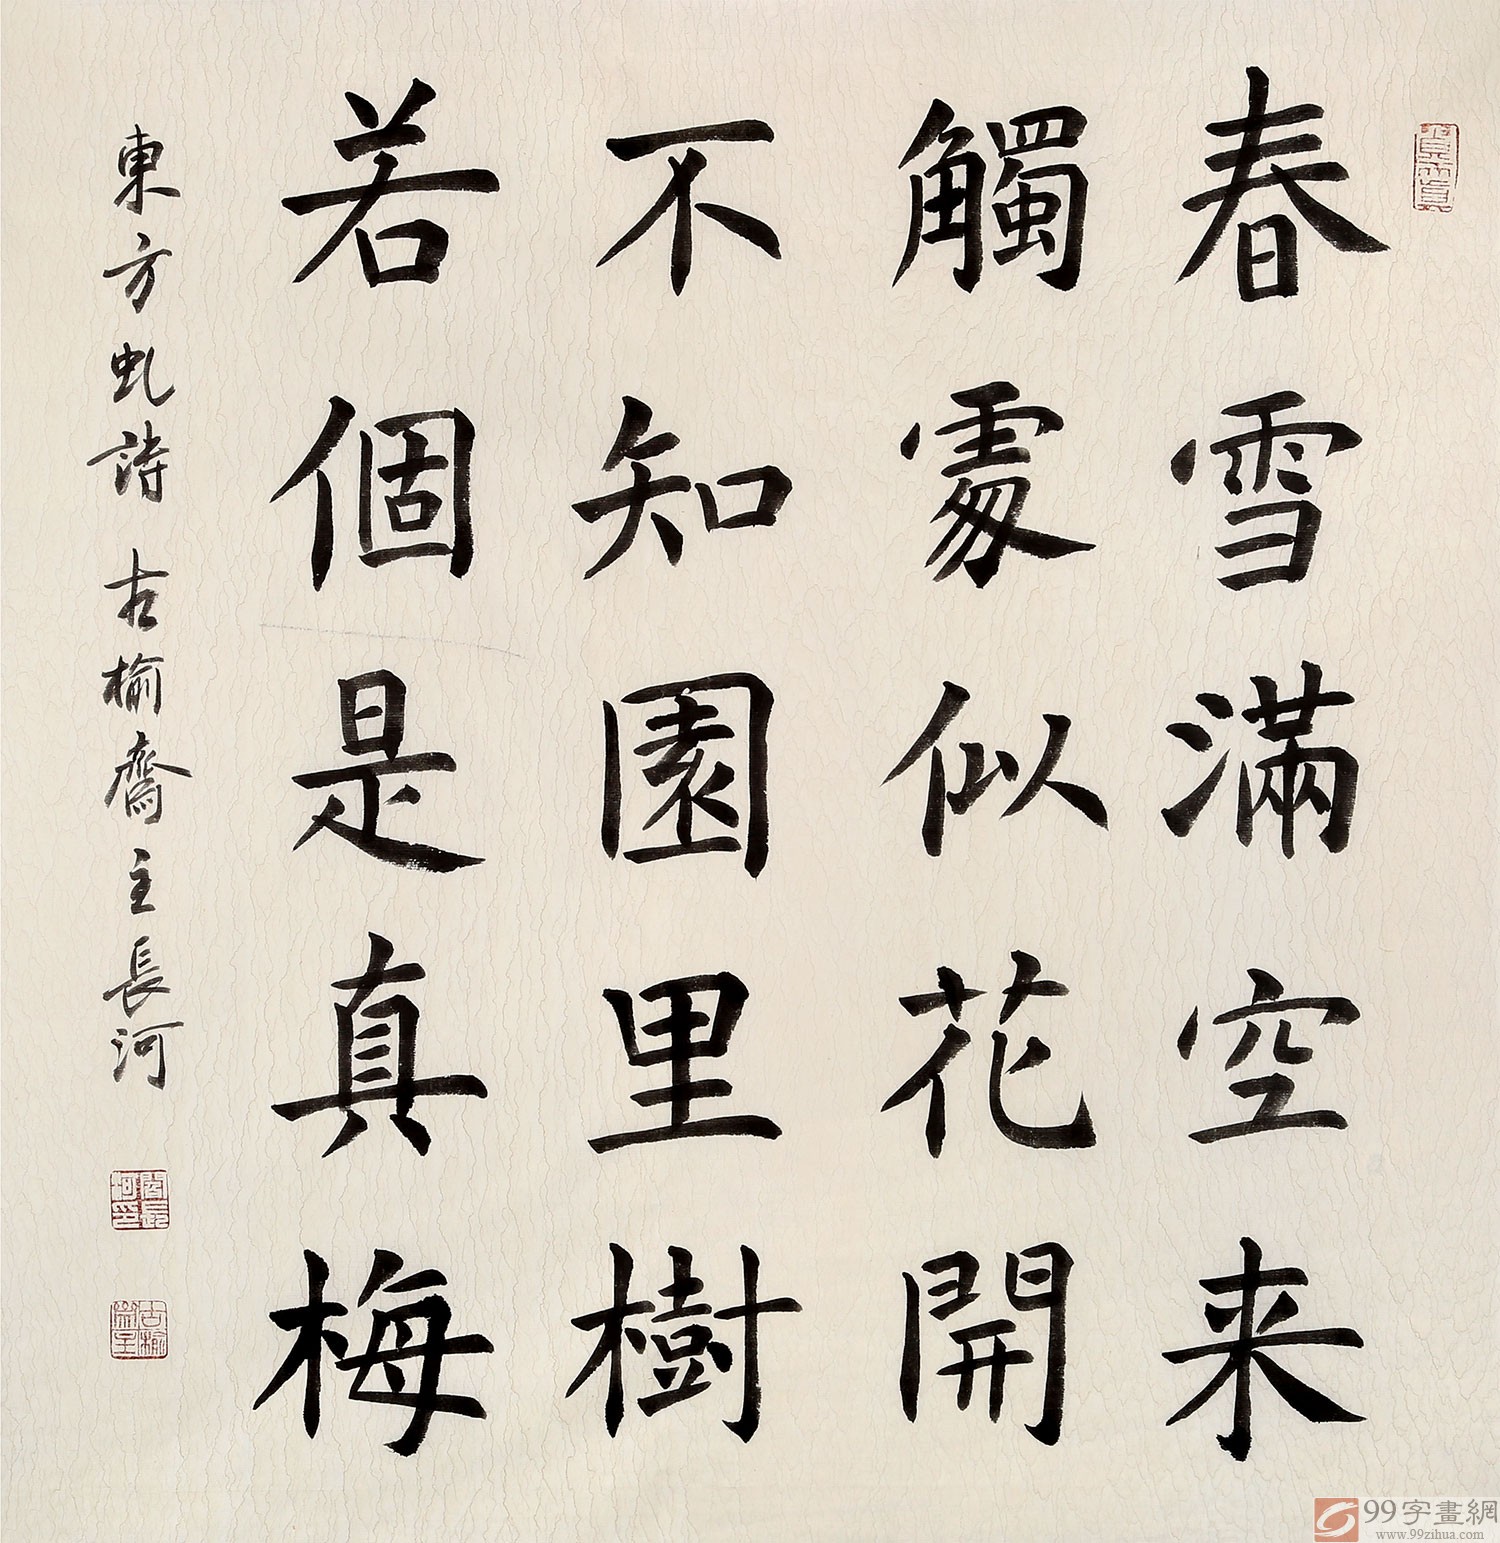 春雪滿空来
觸處似花開
不知園里樹
若個是真梅
東方虬詩 古榆齋主長河
古榆齋主
99字畫網
www.99zihua.com